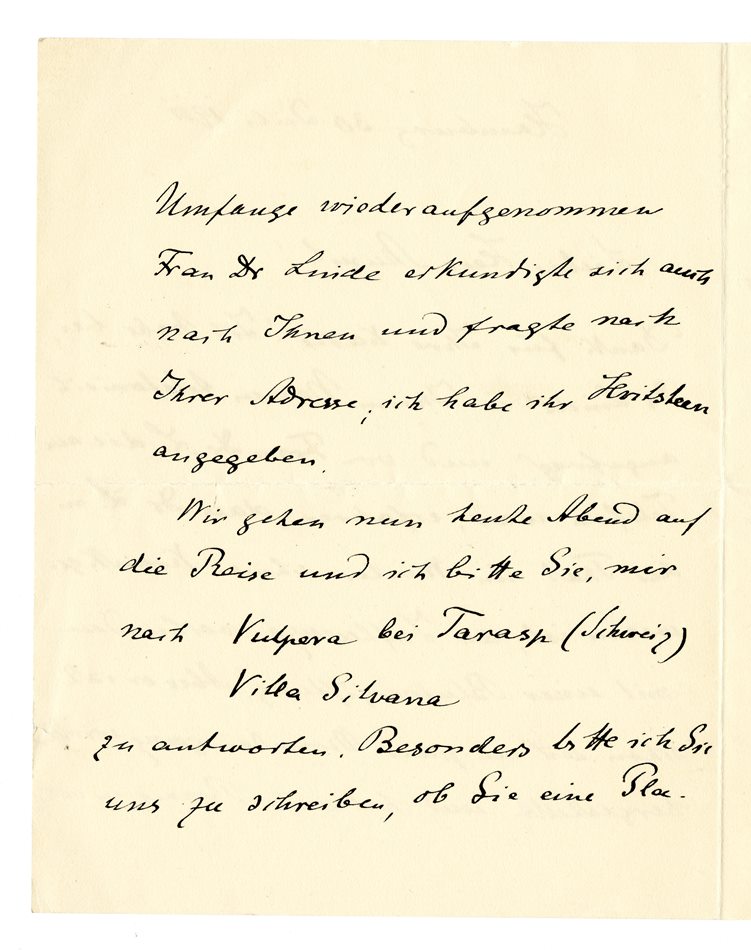 Umfange wiederaufgenommen
Frau Dr Linde erkundigte sich auch
nach Ihnen und fragte nach
Ihrer Adresse, ich habe ihr Hvitsteen
angegeben.
Wir gehen nun heute Abend auf
die Reise und ich bitte Sie, mir
nach Vulpera bei Tarasp (Schweiz)
Villa Silvana
zu antworten. Besonders bitte ich Sie
uns zu schreiben, ob Sie eine Pla-